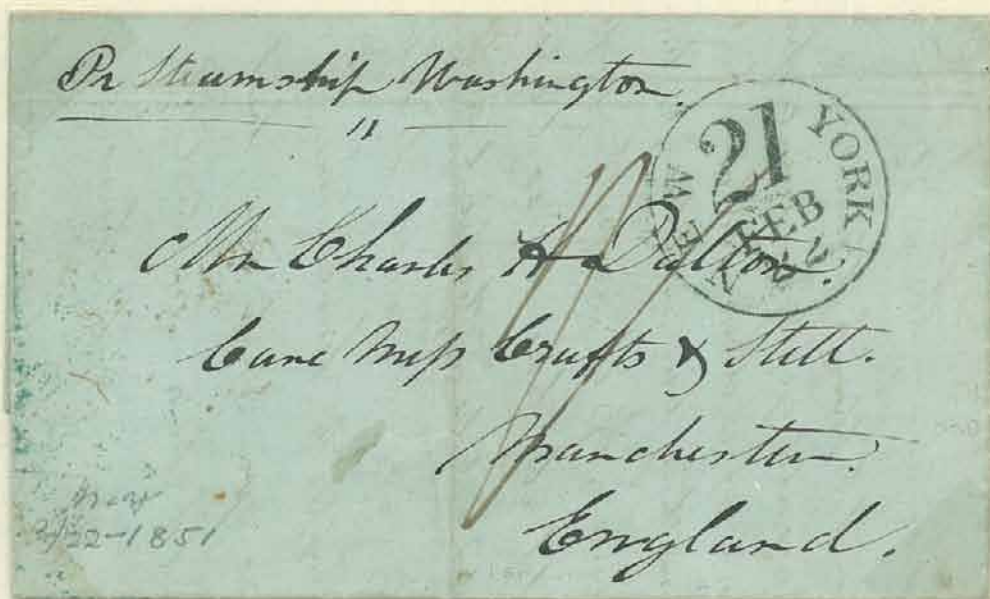 Pr Steamship Washington.
"
NEW YORK
21
FEB
22
Mr Charles H Dalton.
Care Mess Crafts & Stell.
Manchester.
England.
2/22-1851